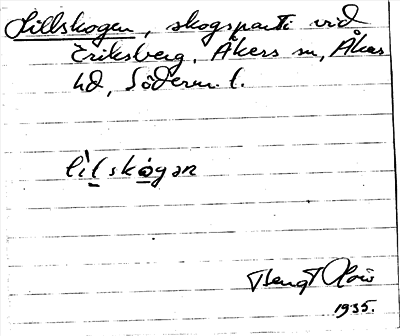 Lillskogen, skogsparti vid
Eriksberg, Åkers sn, Åkers
hd, Söderm. l.
lìlskógan
Bengt
1935.